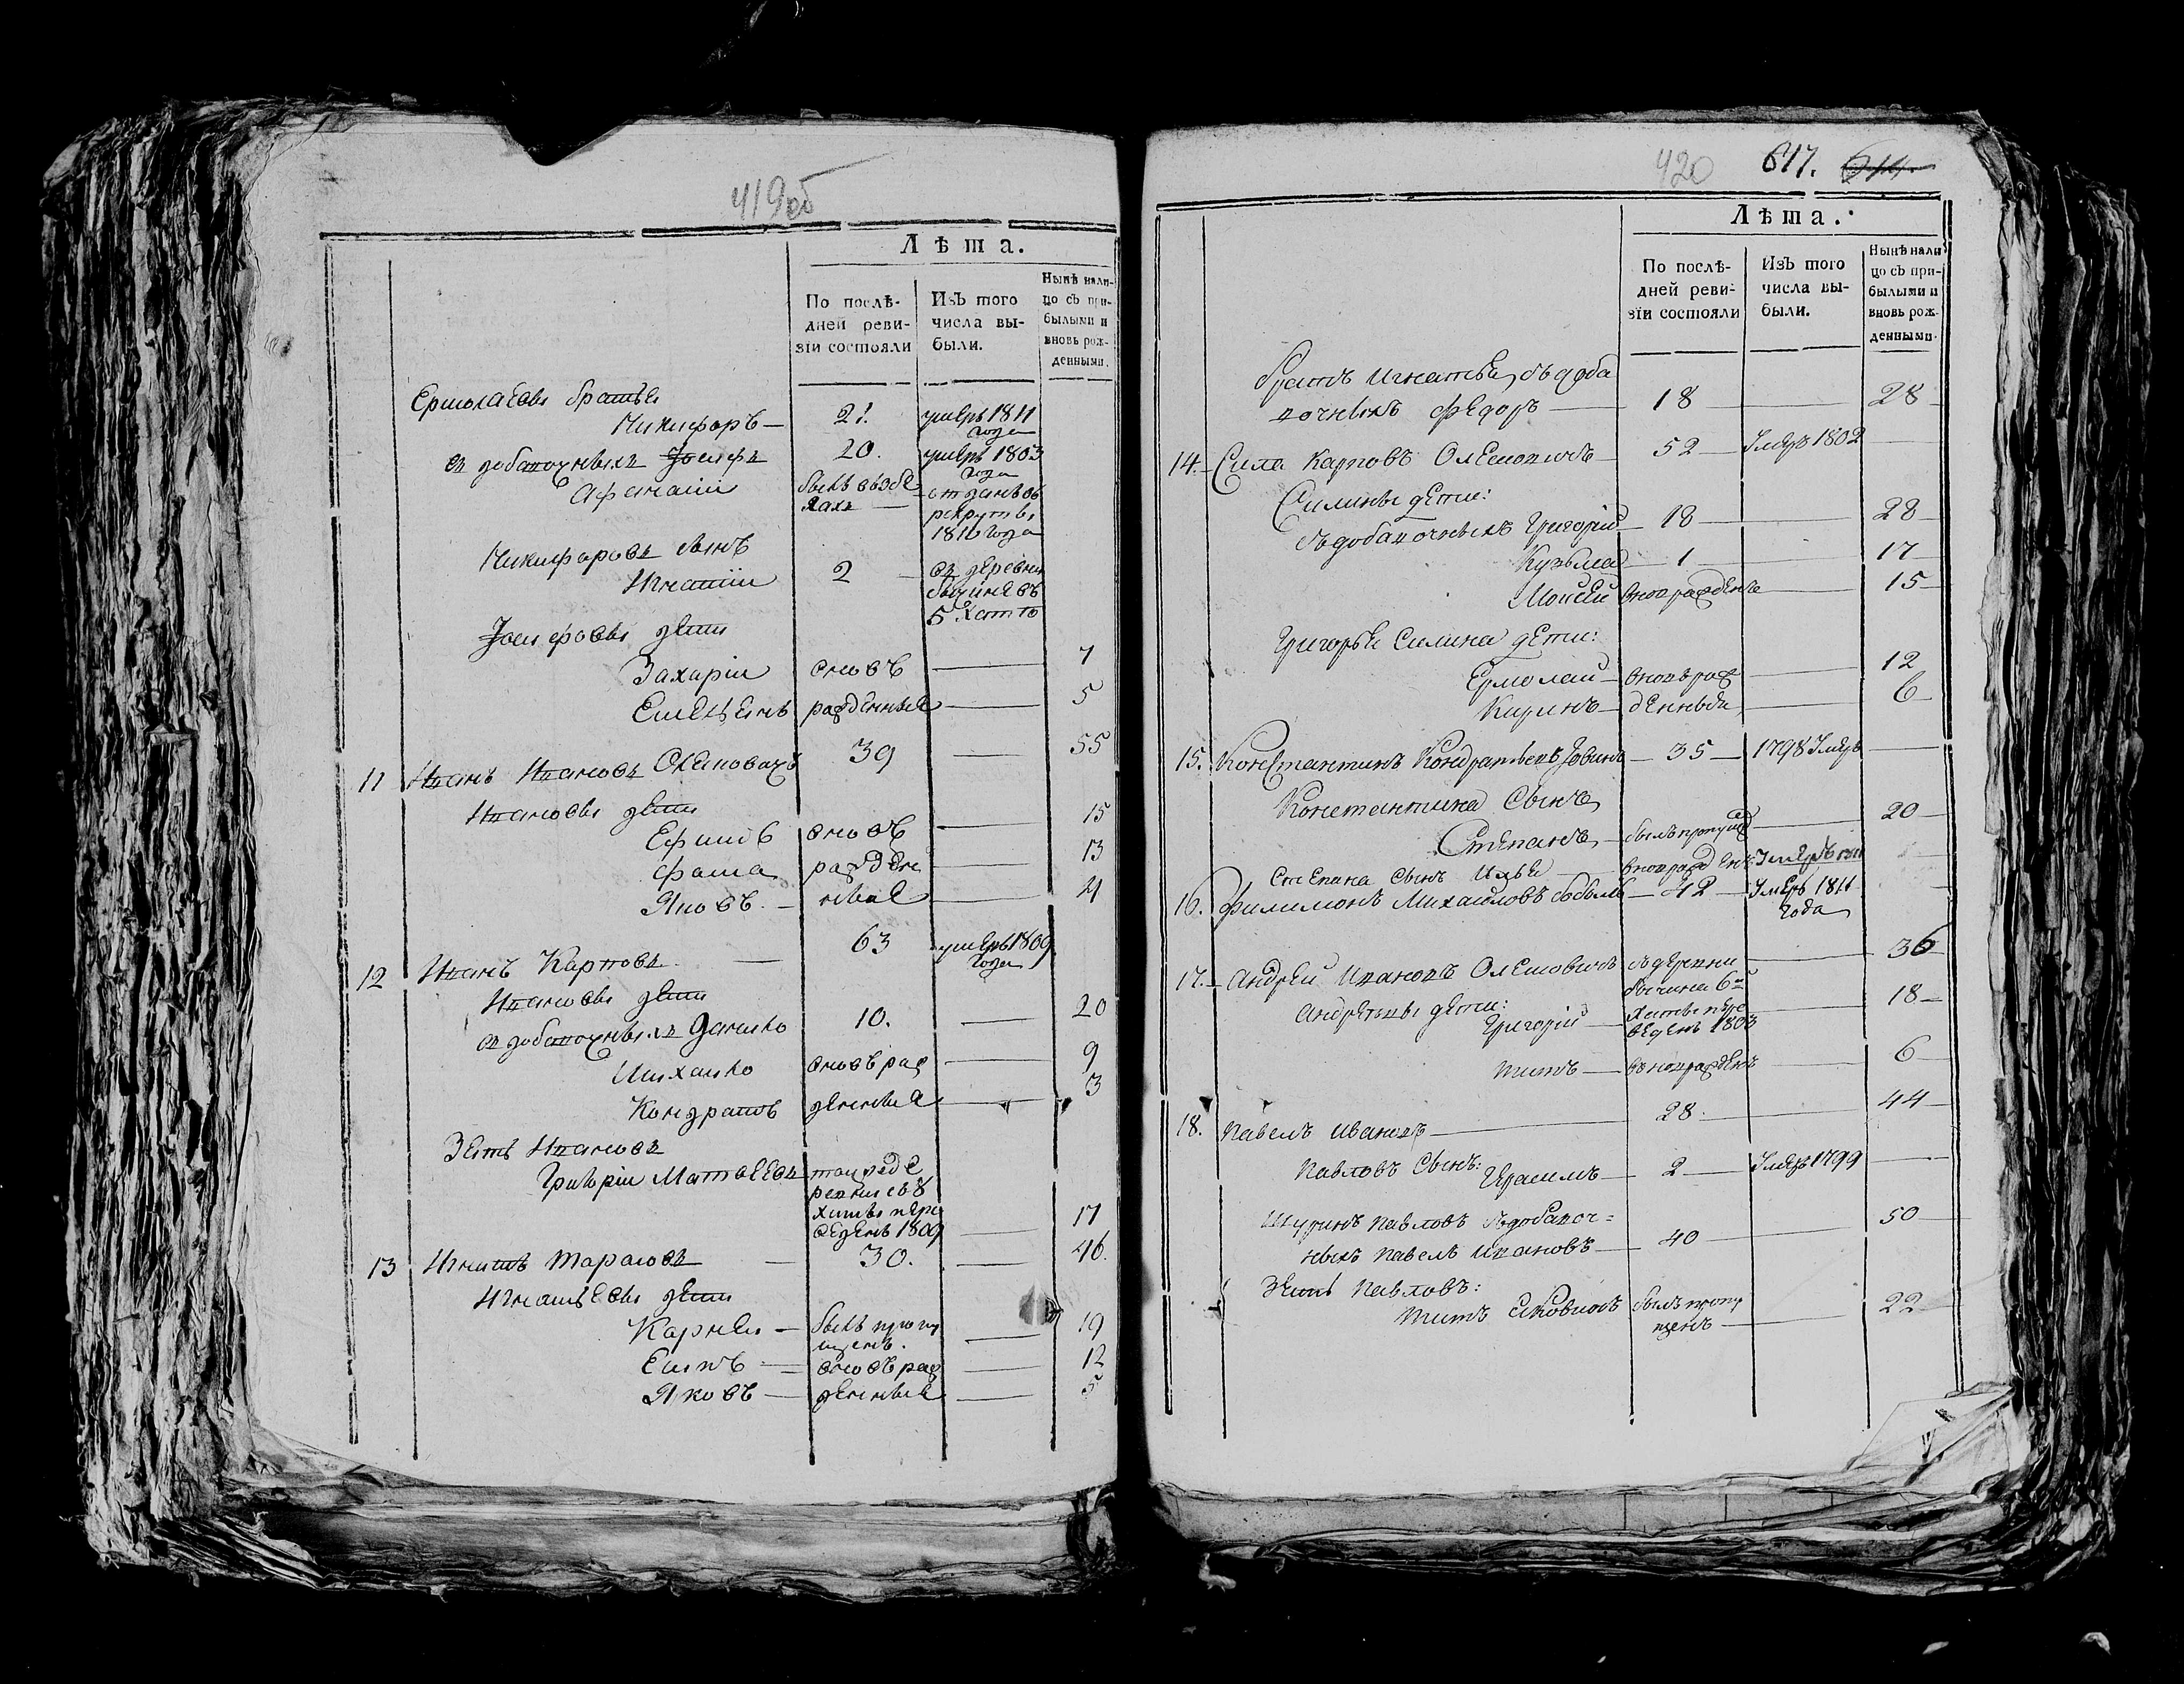 419об
Лѣта.
По послѣ-
дней реви-
зіи состояли
Изъ того
числа вы-
были.
Нынѣ нали-
цо съ при-
былыми и
вновь рож-
денными.
Ермолаевы братья
Никифоръ — 21. умеръ 1811
года
из добавочныхъ Іосифъ 20. умеръ 1803
года
Афанасіи былъ в отданъ въ
рекруты
1810 года
Никифоровъ сынъ
Игнатіи 2 — въ деревни
5 хату
Іосифовы дети
Захаріи вновь — 7
Емельянъ рожденные — 5
11 Иванъ Ивановъ 39 — 55
Ивановы дети
Ефимъ вновь — 15
Фома рожден — 13
Яковъ — ные — 4
12 Иванъ Карповъ — 63 умеръ 1809
года
Ивановы дети
из добавочныхъ Данило 10. — 20
Михайло вновь рож — 9
Кондратъ денные — 3
Зять Ивановъ
Григоріи Матвеевъ той же де
ревни съ 8
хаты пере
веденъ 1809 — 17
13 Игнатъ Тарасовъ — 30. — 46.
Игнатьевы дети
Карней — былъ пропу
щенъ. — 19
Есипъ — вновь рож — 12
Яковъ — денные — 5
420 617. 614.
Лѣта.
По послѣ-
дней реви-
зіи состояли
Изъ того
числа вы-
были.
Нынѣ нали-
цо съ при-
былыми и
вновь рож-
денными.
братъ Игнатьевъ, съ доба
вочныхъ Федоръ — 18 — 28
14. Сила Карповъ — 52 — Умеръ 1802 —
Силины дети:
съ добавочныхъ Григорій — 18 — 28
Кузьма — 1 — 17
Моисей вновь рожденъ — 15
Григорья Силина дети:
Ермолай — вновь рож — 12
Киринъ — денныя — 6
15. Константинъ Кондратьевъ — 35 — 1798 Умеръ —
Константина Сынъ
Степанъ — былъ пропущ — 20
Степана Сынъ Илья — вновь рожденъ Умеръ 1811 —
16. Филимонъ Михайловъ — 42 — Умеръ 1811 —
года
17. Андрей Ивановъ съ деревни — 36
Андреевы дети: 6й
Григорій — хаты пере — 18
веденъ 1803
Титъ — вновь рожденъ — 6
18. Павелъ Ивановъ — 28 — 44
Павловъ Сынъ: Герасимъ — 2 — Умеръ 1799 —
Шуринъ Павловъ съ добавоч=
ныхъ Павелъ Ивановъ — 40 — 50
Зять Павловъ:
Титъ былъ пропу
щенъ — 22